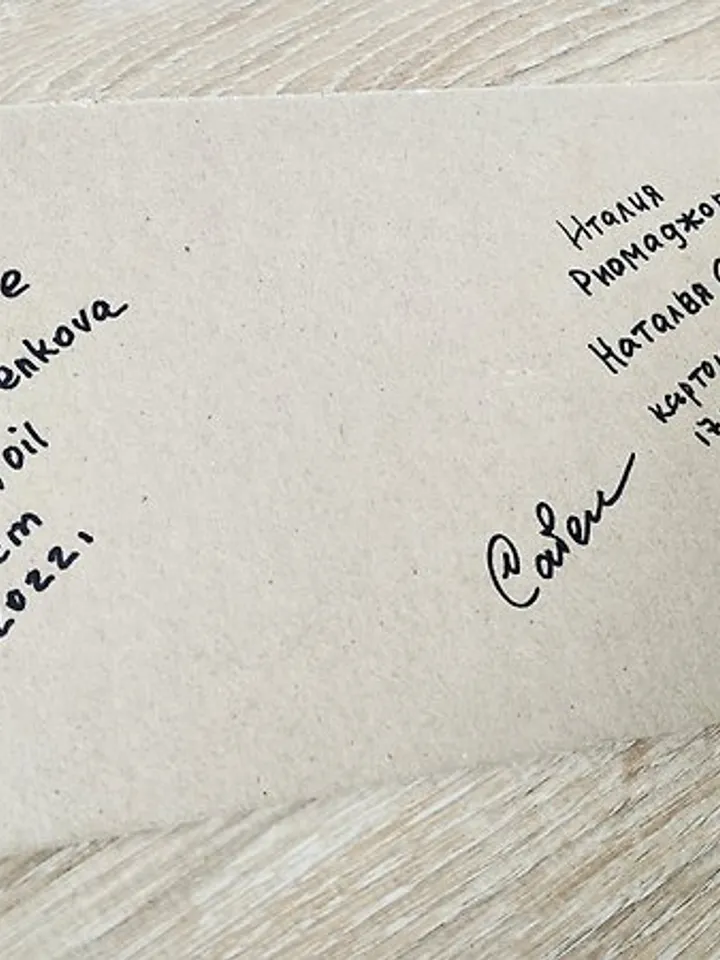 e
enkova
oil
cm
2022,
Италия
Риомаджор
Наталья
картон
17